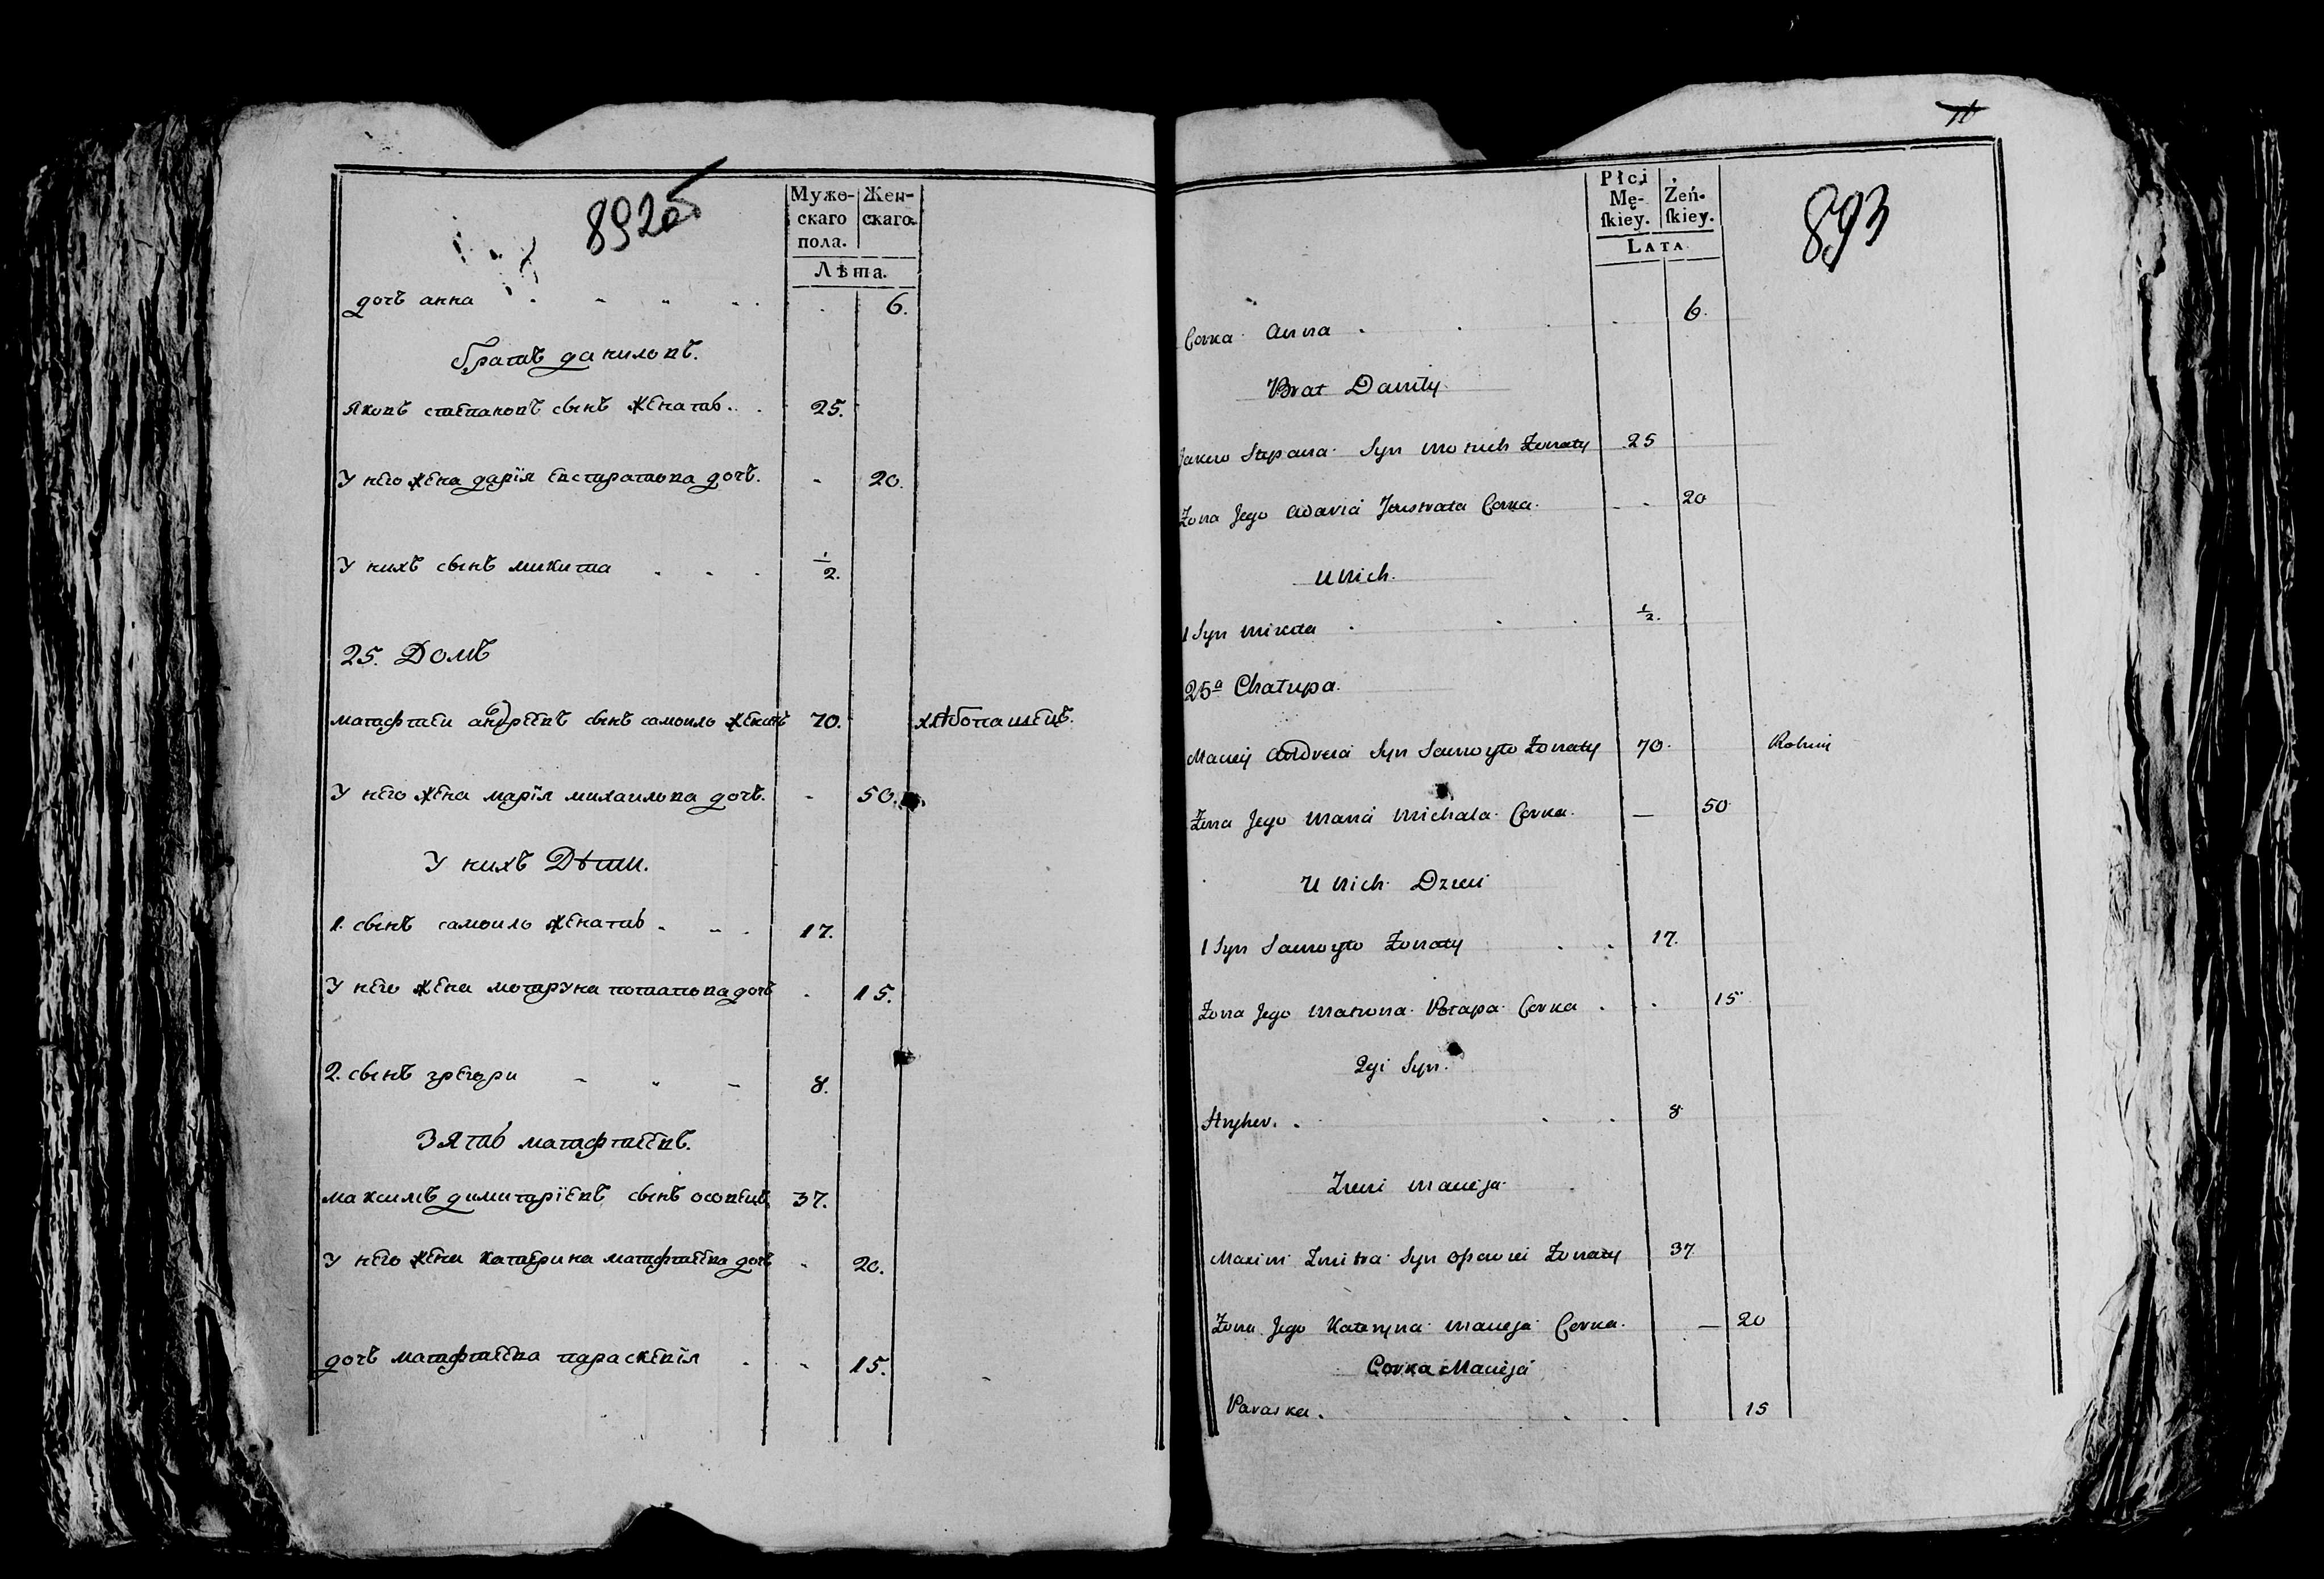 892об
Муже-
скаго
пола.
Жен-
скаго.
Лѣта.
дочъ анна 6.
братъ даниловъ.
яковъ степановъ сынъ женатъ. 25.
У него жена дарїя евстратова дочъ. 20.
У нихъ сынъ микита 1/2.
25. Домъ
матфтеи андреевъ сынъ самоило женатъ 70. хлѣбопашецъ.
У него жена марїя михаилова дочъ. 50.
У нихъ Дѣти.
1. сынъ самоило женатъ 17.
У него жена мотруна потапова дочъ 15.
2. сынъ грегори 8.
Зять матфтеевъ.
максимъ димитрїевъ сынъ 37.
У него жена катерина матфтеева дочъ 20.
дочъ матфтеева параскевїя 15.
893
Płci
Mę-
ſkiey.
Żeń-
ſkiey.
LATA
Corka Anna 6.
Brat Daniły
Jakow Stepana Syn Żonaty 25
Żona Jego Corka. 20
U Nich.
1 Syn Mikita 1/2.
25a Chałupa.
Maciej Andreia Syn Samoyło Żonaty 70.
Żona Jego Maria Michała Corka. 50
U Nich Dzieci
1 Syn Samoyło Żonaty 17.
Żona Jego Matrona Potapa Corka 15
2gi Syn.
Hryhor. 8
Zieci Macieja
Maxim Zmitra Syn Żonaty 37
Żona Jego Kateryna Macieja Corka. 20
Corka Macieja
Paraska. 15